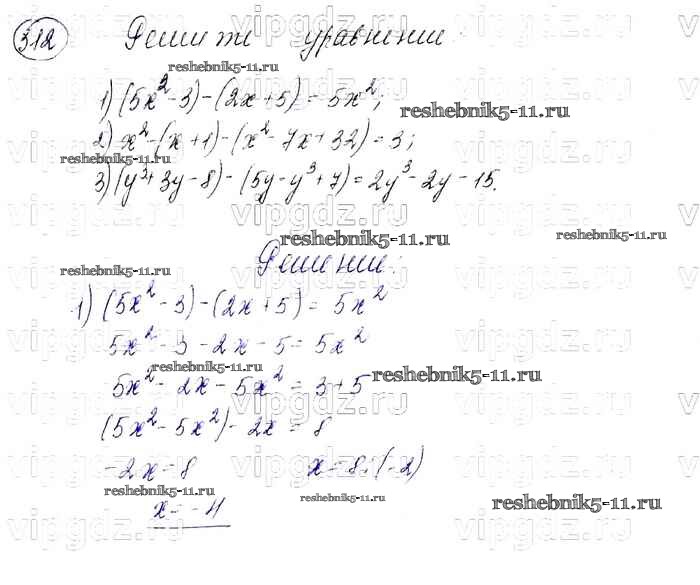 312 Решите уравнение:
reshebnik5-11.ru
1) (5x² - 3) - (2x + 5) = 5x²;
reshebnik5-11.ru
2) x² - (x + 1) - (x² - 7x + 32) = 3;
reshebnik5-11.ru
3) (y³ + 3y - 8) - (5y - y³ + 7) = 2y³ - 2y - 15.
reshebnik5-11.ru reshebnik5-11.ru
Решение:
reshebnik5-11.ru
1) (5x² - 3) - (2x + 5) = 5x²
5x² - 3 - 2x - 5 = 5x²
reshebnik5-11.ru
5x² - 2x - 5x² = 3 + 5 reshebnik5-11.ru
(5x² - 5x²) - 2x = 8
-2x = 8 x = 8 : (-2)
reshebnik5-11.ru reshebnik5-11.ru
x = -4 reshebnik5-11.ru
vipgdz.ru vipgdz.ru